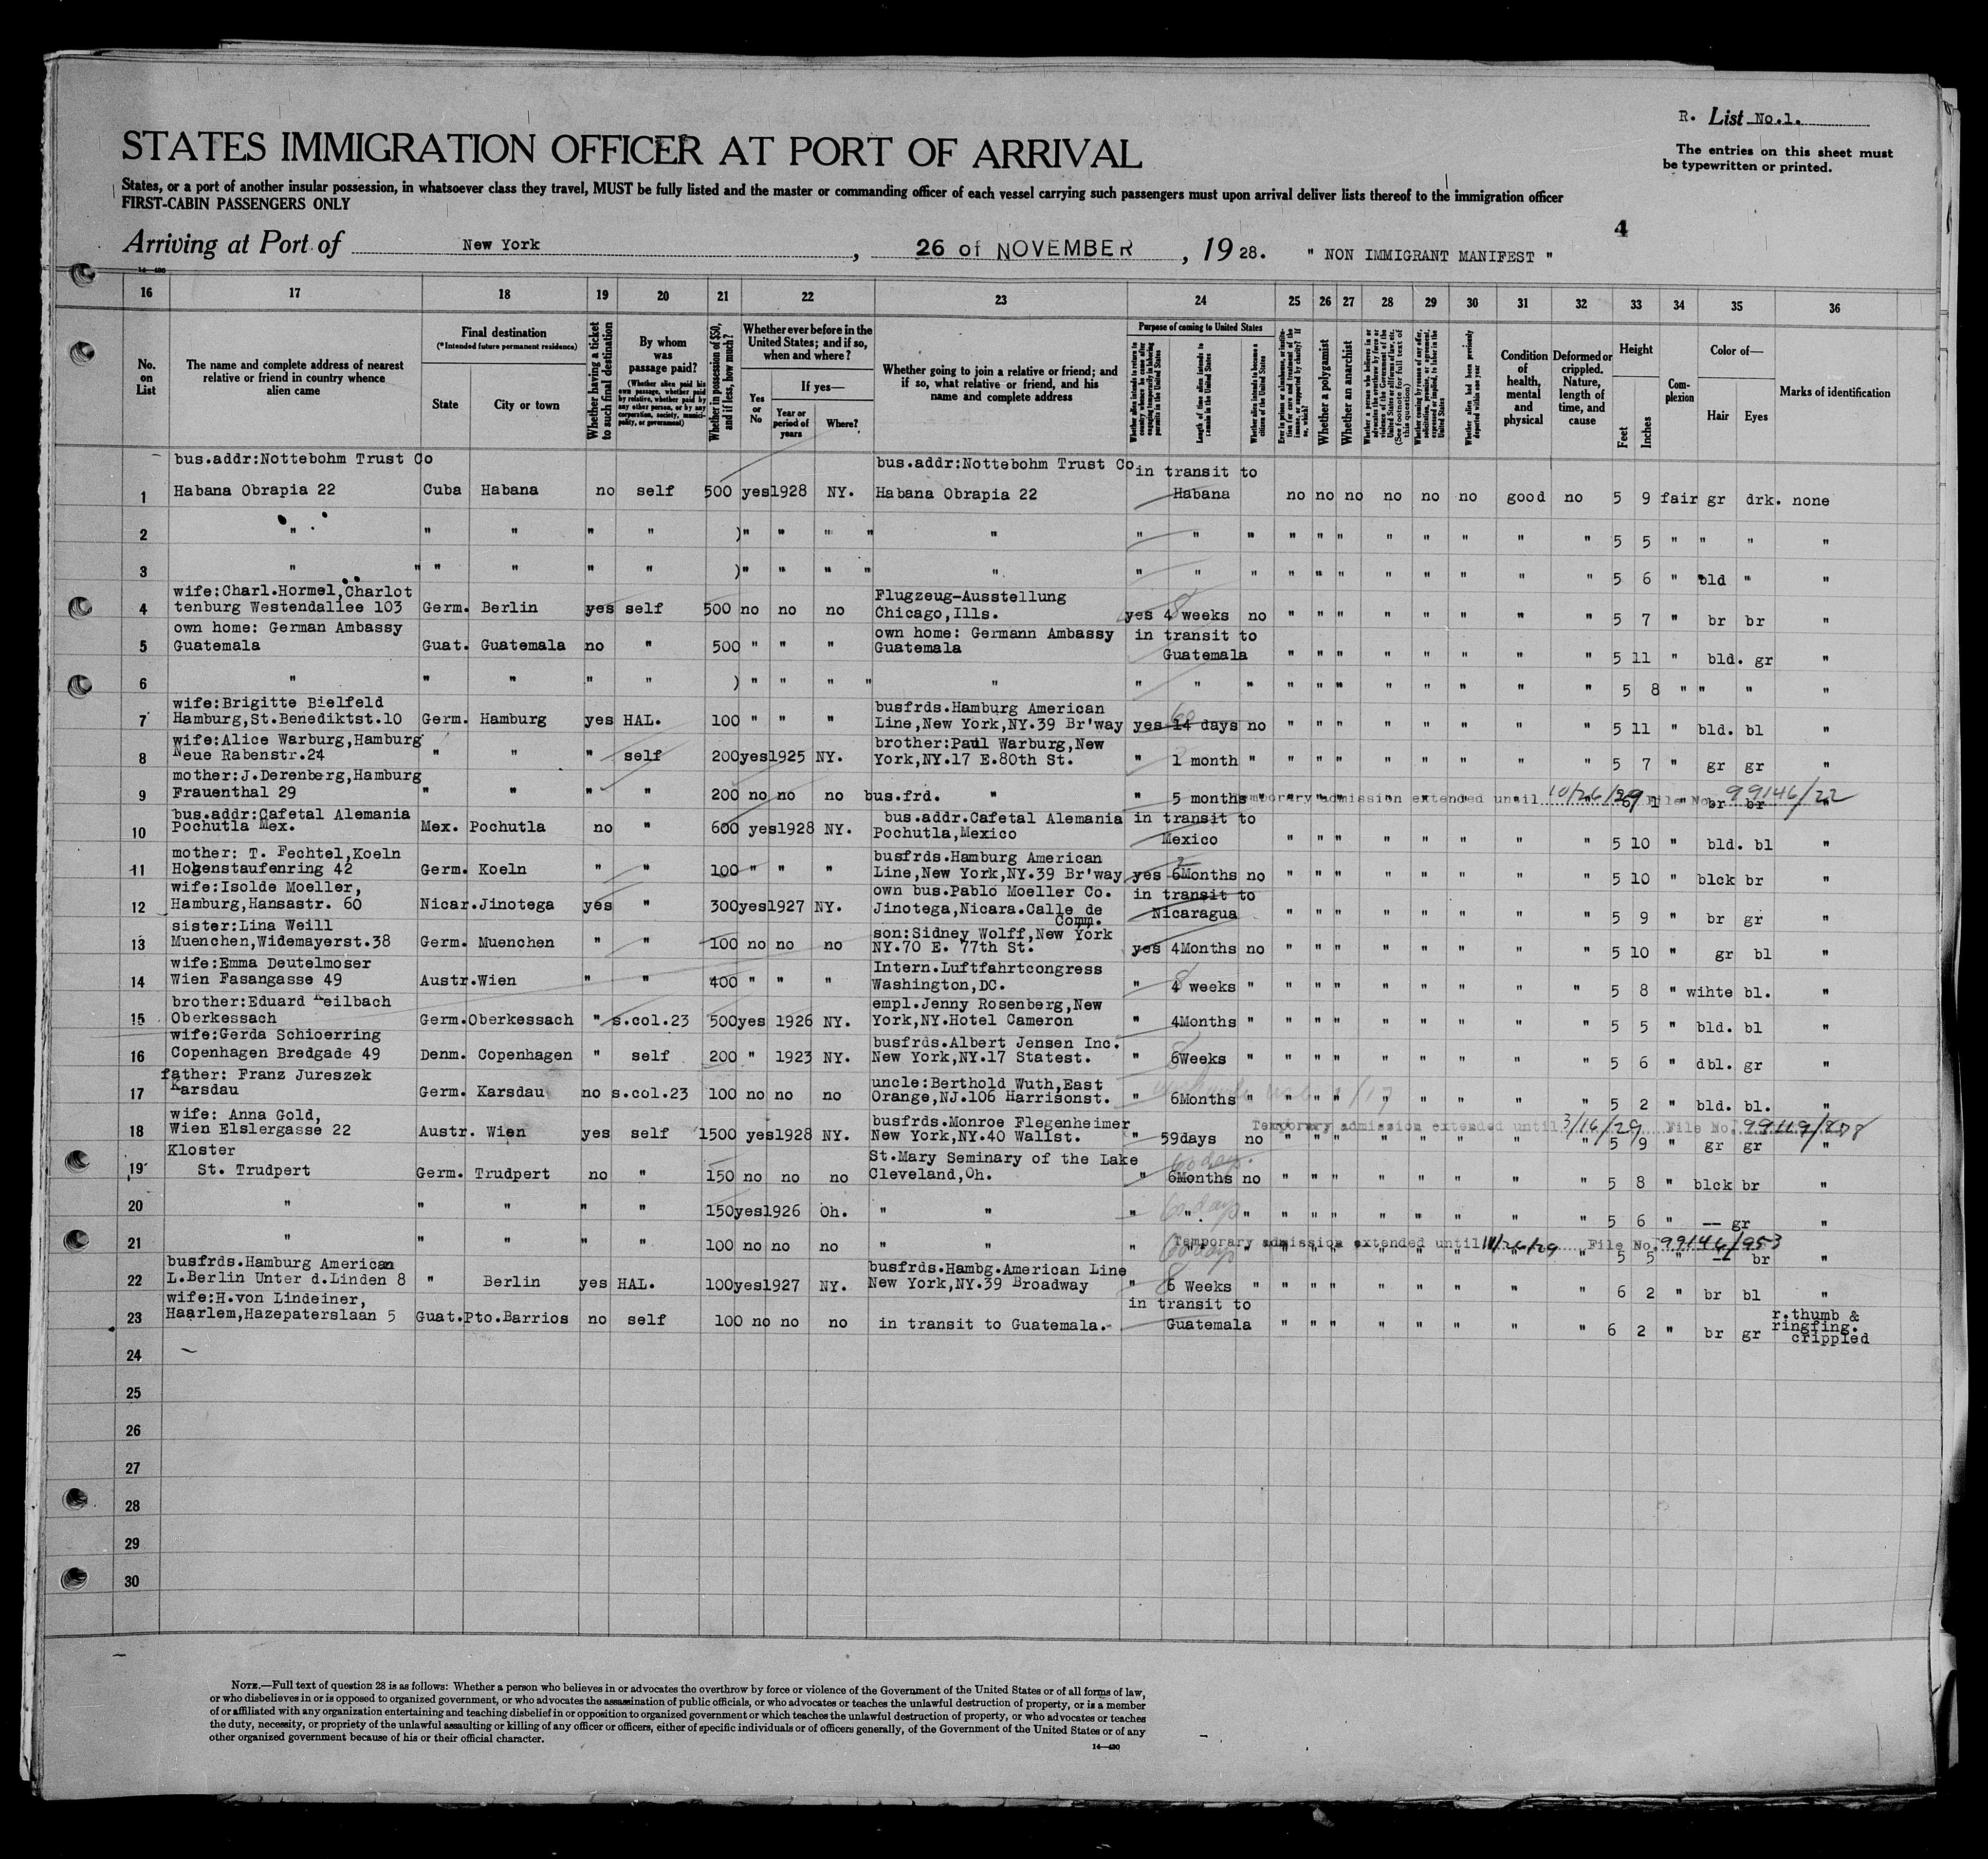 R. List No.1.
STATES IMMIGRATION OFFICER AT PORT OF ARRIVAL
The entries on this sheet must
be typewritten or printed.
States, or a port of another insular possession, in whatsoever class they travel, MUST be fully listed and the master or commanding officer of each vessel carrying such passengers must upon arrival deliver lists thereof to the immigration officer
FIRST-CABIN PASSENGERS ONLY
4
Arriving at Port of New York, 26 of NOVEMBER, 1928. " NON IMMIGRANT MANIFEST "
14—430
16 17 18 19 20 21 22 23 24 25 26 27 28 29 30 31 32 33 34 35 36
No. on List
The name and complete address of nearest relative or friend in country whence alien came
Final destination
(*Intended future permanent residence)
State
City or town
Whether having a ticket to such final destination
By whom was passage paid?
(Whether alien paid his own passage, whether paid by relative, whether paid by any other person, or by any corporation, society, municipality, or government)
Whether in possession of $50, and if less, how much?
Whether ever before in the United States; and if so, when and where?
If yes—
Yes or No
Year or period of years
Where?
Whether going to join a relative or friend; and if so, what relative or friend, and his name and complete address
Purpose of coming to United States
Length of time alien intends to remain in the United States
Whether alien intends to become a citizen of the United States
Whether a polygamist
Whether an anarchist
Whether alien had been previously deported within one year
Condition of health, mental and physical
Deformed or crippled. Nature, length of time, and cause
Height
Feet
Inches
Complexion
Color of—
Hair
Eyes
Marks of identification
bus.addr:Nottebohm Trust Co bus.addr:Nottebohm Trust Co in transit to
1 Habana Obrapia 22 Cuba Habana no self 500 yes 1928 NY. Habana Obrapia 22 Habana no no no no no no good no 5 9 fair gr drk. none
2 " " " " " ) " " " " " " " " " " " " " " " " " 5 5 " " " "
3 " " " " " " ) " " " " " " " " " " " " " " " " " 5 6 " bld " "
wife:Charl.Hormel,Charlot Flugzeug-Ausstellung
4 tenburg Westendallee 103 Germ. Berlin yes self 500 no no no Chicago,Ills. yes 4 8 weeks no " " " " " " " " 5 7 " br br "
own home: German Ambassy own home: Germann Ambassy in transit to
5 Guatemala Guat. Guatemala no " 500 " " " Guatemala Guatemala " " " " " " " " 5 11 " bld. gr "
6 " " " " " ) " " " " " " " " " " " " " " " " " 5 8 " " " "
wife:Brigitte Bielfeld busfrds.Hamburg American
7 Hamburg,St.Benediktst.10 Germ. Hamburg yes HAL. 100 " " " Line,New York,NY.39 Br'way yes 14 60 days no " " " " " " " " 5 11 " bld. bl "
wife:Alice Warburg,Hamburg brother:Paul Warburg,New
8 Neue Rabenstr.24 " " " self 200 yes 1925 NY. York,NY.17 E.80th St. " 1 month " " " " " " " " " 5 7 " gr gr "
mother:J.Derenberg,Hamburg
9 Frauenthal 29 " " " " 200 no no no bus.frd. " " 5 months Temporary admission extended until 10/26/29 File No. 99146/22 br br "
bus.addr:Cafetal Alemania bus.addr.Cafetal Alemania in transit to
10 Pochutla Mex. Mex. Pochutla no " 600 yes 1928 NY. Pochutla,Mexico Mexico " " " " " " " " 5 10 " bld. bl "
mother: T. Fechtel,Koeln busfrds.Hamburg American
11 Hohenstaufenring 42 Germ. Koeln " " 100 " " " Line,New York,NY.39 Br'way yes 6Months no " " " " " " " " 5 10 " blck br "
wife:Isolde Moeller, own bus.Pablo Moeller Co. in transit to
12 Hamburg,Hansastr. 60 Nicar. Jinotega yes " 300 yes 1927 NY. Jinotega,Nicara.Calle de Comm. Nicaragua " " " " " " " " 5 9 " br gr "
sister:Lina Weill son:Sidney Wolff,New York
13 Muenchen,Widemayerst.38 Germ. Muenchen " " 100 no no no NY.70 E. 77th St. yes 4Months no " " " " " " " " 5 10 " gr bl "
wife:Emma Deutelmoser Intern.Luftfahrtcongress
14 Wien Fasangasse 49 Austr. Wien " " 400 " " " Washington,DC. " 4 8 weeks " " " " " " " " " 5 8 " wihte bl. "
brother:Eduard Keilbach empl.Jenny Rosenberg,New
15 Oberkessach Germ. Oberkessach " s.col.23 500 yes 1926 NY. York,NY.Hotel Cameron " 4Months " " " " " " " " " 5 5 " bld. bl "
wife:Gerda Schioerring busfrds.Albert Jensen Inc.
16 Copenhagen Bredgade 49 Denm. Copenhagen " self 200 " 1923 NY. New York,NY.17 Statest. " 6Weeks " " " " " " " " " 5 6 " dbl. gr "
father: Franz Jureszek uncle:Berthold Wuth,East
17 Karsdau Germ. Karsdau no s.col.23 100 no no no Orange,NJ.106 Harrisonst. " 6Months " " " " " " " " " 5 2 " bld. bl. "
wife: Anna Gold, busfrds.Monroe Flegenheimer Temporary admission extended until 3/16/29 File No. 99119/878
18 Wien Elslergasse 22 Austr. Wien yes self 1500 yes 1928 NY. New York,NY.40 Wallst. " 59days no " " " " " " " " 5 9 " gr gr "
Kloster St.Mary Seminary of the Lake 60 days.
19 St. Trudpert Germ. Trudpert no " 150 no no no Cleveland,Oh. " 6Months no " " " " " " " " 5 8 " blck br "
20 " " " " " 150 yes 1926 Oh. " " " 60 days " " " " " " " " " 5 6 " -- gr "
21 " " " " " 100 no no no " " " 60 days Temporary admission extended until 11/26/29 File No. 99146/953 5 5 " -- br "
busfrds.Hamburg American busfrds.Hambg.American Line
22 L.Berlin Unter d.Linden 8 " Berlin yes HAL. 100 yes 1927 NY. New York,NY.39 Broadway " 6 8 Weeks " " " " " " " " " 6 2 " br bl "
wife:H.von Lindeiner, in transit to r.thumb &
23 Haarlem,Hazepaterslaan 5 Guat. Pto.Barrios no self 100 no no no in transit to Guatemala. Guatemala " " " " " " " " 6 2 " br gr ringfing. crippled
24
25
26
27
28
29
30
NOTE.—Full text of question 28 is as follows: Whether a person who believes in or advocates the overthrow by force or violence of the Government of the United States or of all forms of law,
or who disbelieves in or is opposed to organized government, or who advocates the assassination of public officials, or who advocates or teaches the unlawful destruction of property, or is a member
of or affiliated with any organization entertaining and teaching disbelief in or opposition to organized government or which teaches the unlawful destruction of property, or who advocates or teaches
the duty, necessity, or propriety of the unlawful assaulting or killing of any officer or officers, either of specific individuals or of officers generally, of the Government of the United States or of any
other organized government because of his or their official character.
14—430